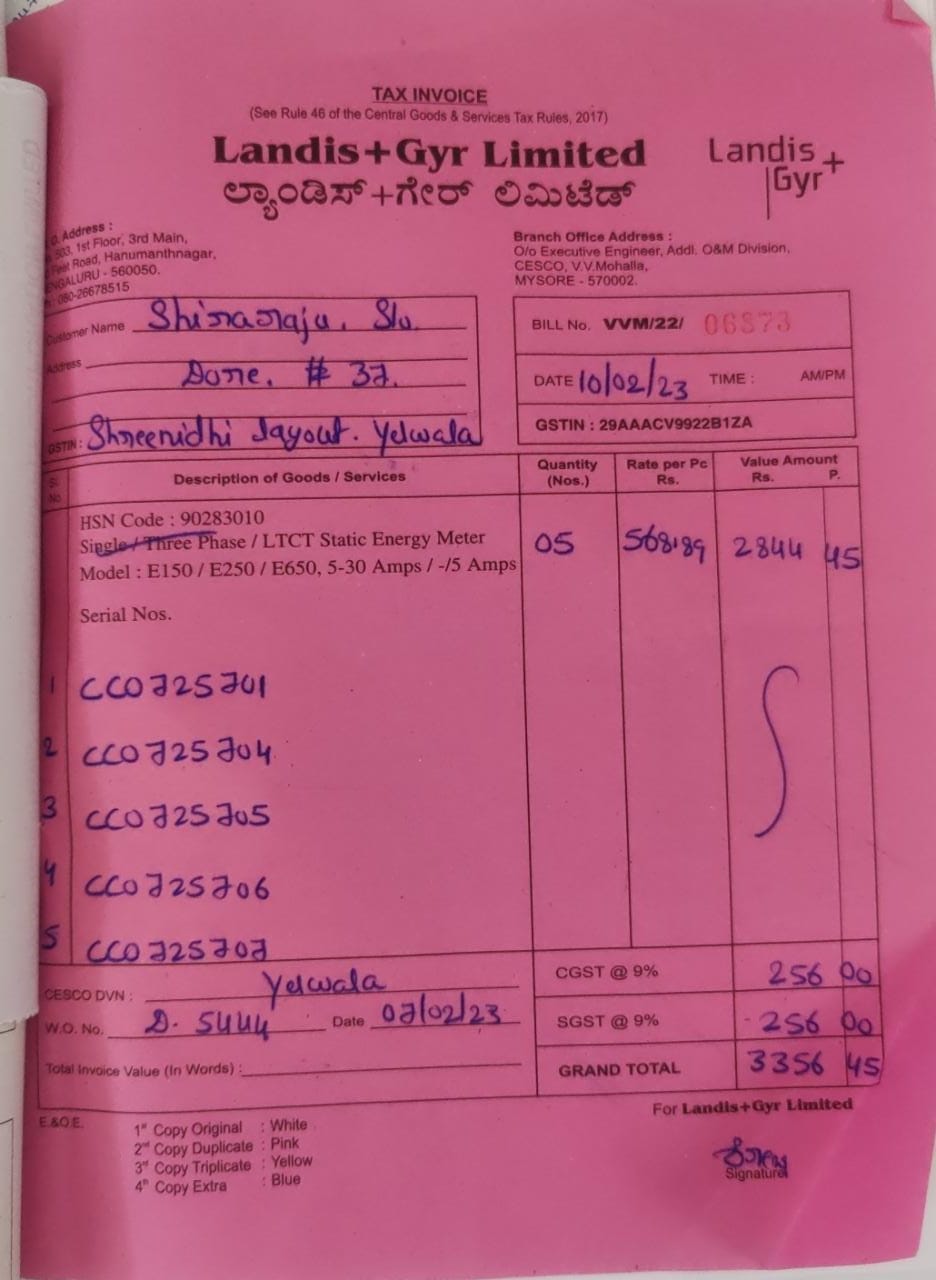 TAX INVOICE
(See Rule 46 of the Central Goods & Services Tax Rules, 2017)
Landis+Gyr Limited
ಲ್ಯಾಂಡಿಸ್+ಗೇರ್ ಲಿಮಿಟೆಡ್
Landis
Gyr+
Address :
503, 1st Floor, 3rd Main,
Feet Road, Hanumanthnagar,
BENGALURU - 560050.
080-26678515
Branch Office Address :
O/o Executive Engineer, Addl. O&M Division,
CESCO, V.V.Mohalla,
MYSORE - 570002.
Customer Name
Address # 37.
GSTIN : Shreenidhi layout. Yelwala
BILL No. VVM/22/ 06873
DATE 10/02/23 TIME : AM/PM
GSTIN : 29AAACV9922B1ZA
Sl. No. Description of Goods / Services Quantity (Nos.) Rate per Pc Rs. Value Amount Rs. P.
HSN Code : 90283010
Single / Three Phase / LTCT Static Energy Meter 05 568.89 2844 45
Model : E150 / E250 / E650, 5-30 Amps / -/5 Amps
Serial Nos.
1 CC0725701
2 CC0725704
3 CC0725705
4 CC0725706
5 CC0725707
CESCO DVN : Yelwala
W.O. No. D. 5444 Date 07/02/23
Total Invoice Value (In Words) :
CGST @ 9% 256 00
SGST @ 9% 256 00
GRAND TOTAL 3356 45
E.&O.E.
1st Copy Original : White
2nd Copy Duplicate : Pink
3rd Copy Triplicate : Yellow
4th Copy Extra : Blue
For Landis+Gyr Limited
Signature